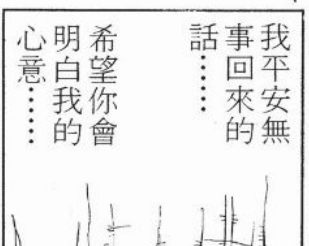 我平安無
事回來的
話……
希望你會
明白我的
心意……